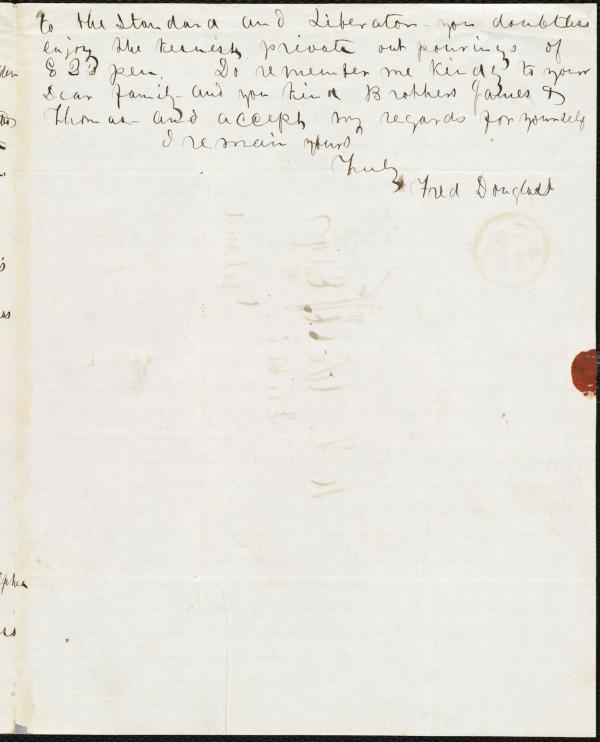 to the Standard and Liberator - you doubtless
enjoy the private out pourings of
pen. Do remember me kindly to your
Dear family - and you kind Brothers James &
Thomas - and accept my regards for yourself
I remain yours
Truly
Fred Douglass